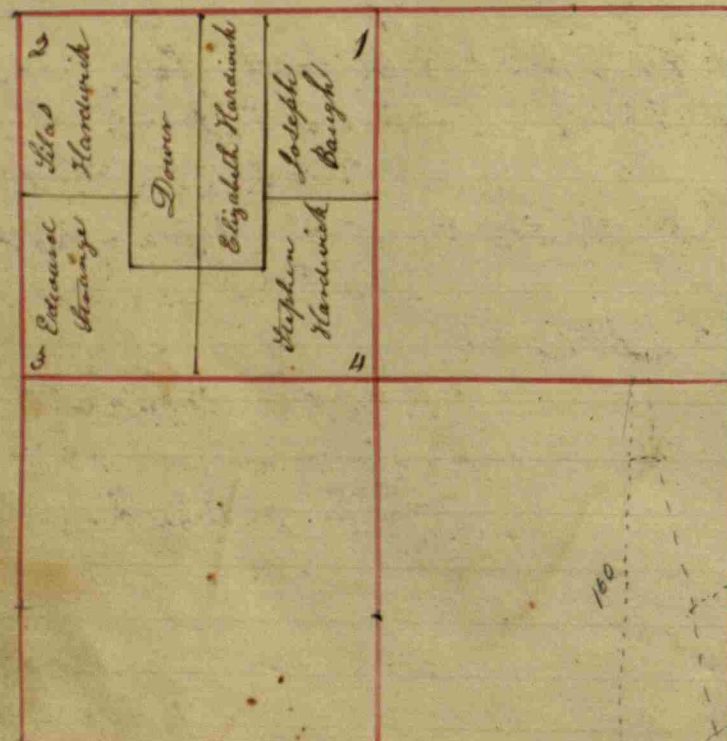 2
Silas
Hardwick
3
Edward
Strange
Dower
Elizabeth Hardwick
1
Joseph
Baugh
4
Stephen
Hardwick
160